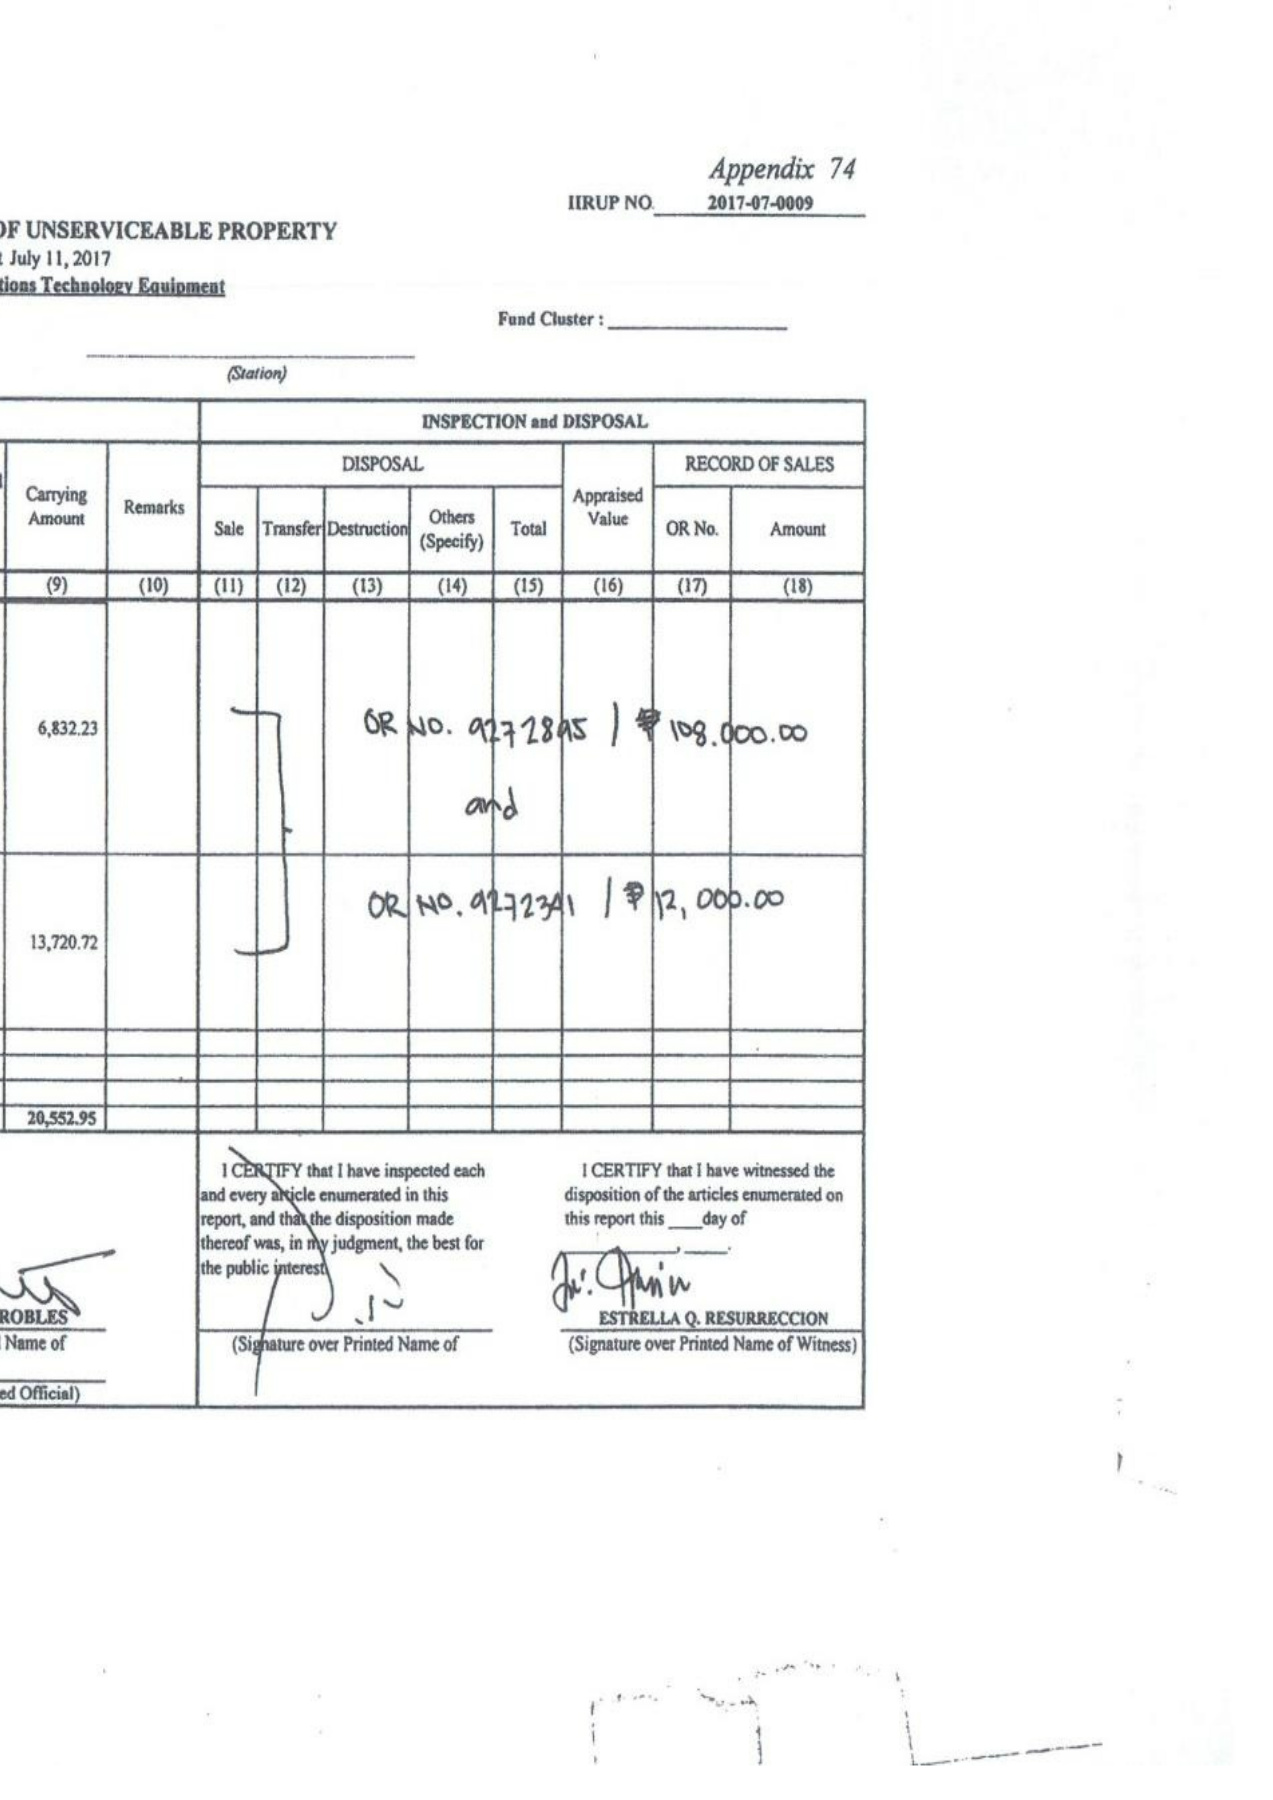 Appendix 74
IIRUP NO. 2017-07-0009
OF UNSERVICEABLE PROPERTY
t July 11, 2017
tions Technology Equipment
Fund Cluster :
(Station)
INSPECTION and DISPOSAL
DISPOSAL
RECORD OF SALES
Carrying Amount
Remarks
Sale
Transfer
Destruction
Others (Specify)
Total
Appraised Value
OR No.
Amount
(9) (10) (11) (12) (13) (14) (15) (16) (17) (18)
6,832.23
OR NO. 9272895 / ₱ 108.000.00
and
OR NO. 9272341 / ₱ 12,000.00
13,720.72
20,552.95
I CERTIFY that I have inspected each
and every article enumerated in this
report, and that the disposition made
thereof was, in my judgment, the best for
the public interest
(Signature over Printed Name of
I CERTIFY that I have witnessed the
disposition of the articles enumerated on
this report this ____day of
ESTRELLA Q. RESURRECCION
(Signature over Printed Name of Witness)
ROBLES
Name of
ed Official)